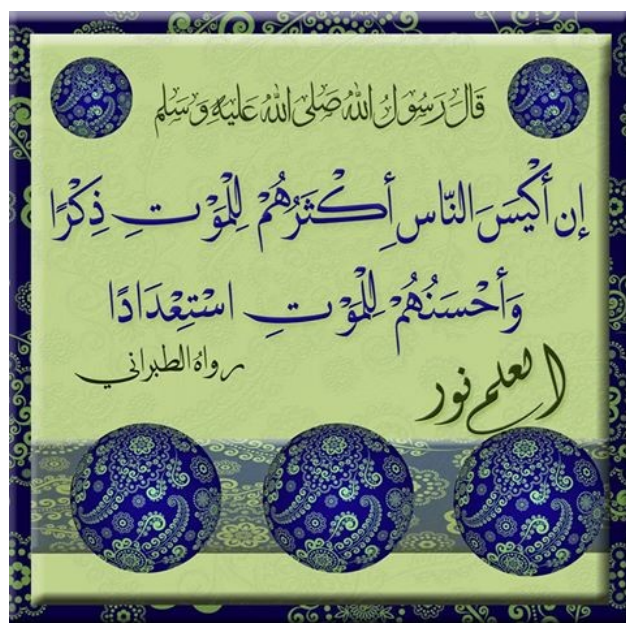 قَالَ رَسُولُ اللهِ صَلَّى اللهُ عَلَيْهِ وَسَلَّم
إن أَكْيَسَ النَّاسِ أَكْثَرُهُمْ لِلْمَوْتِ ذِكْرًا
وَأَحْسَنُهُمْ لِلْمَوْتِ اسْتِعْدَادًا
رواه الطبراني
العلم نور